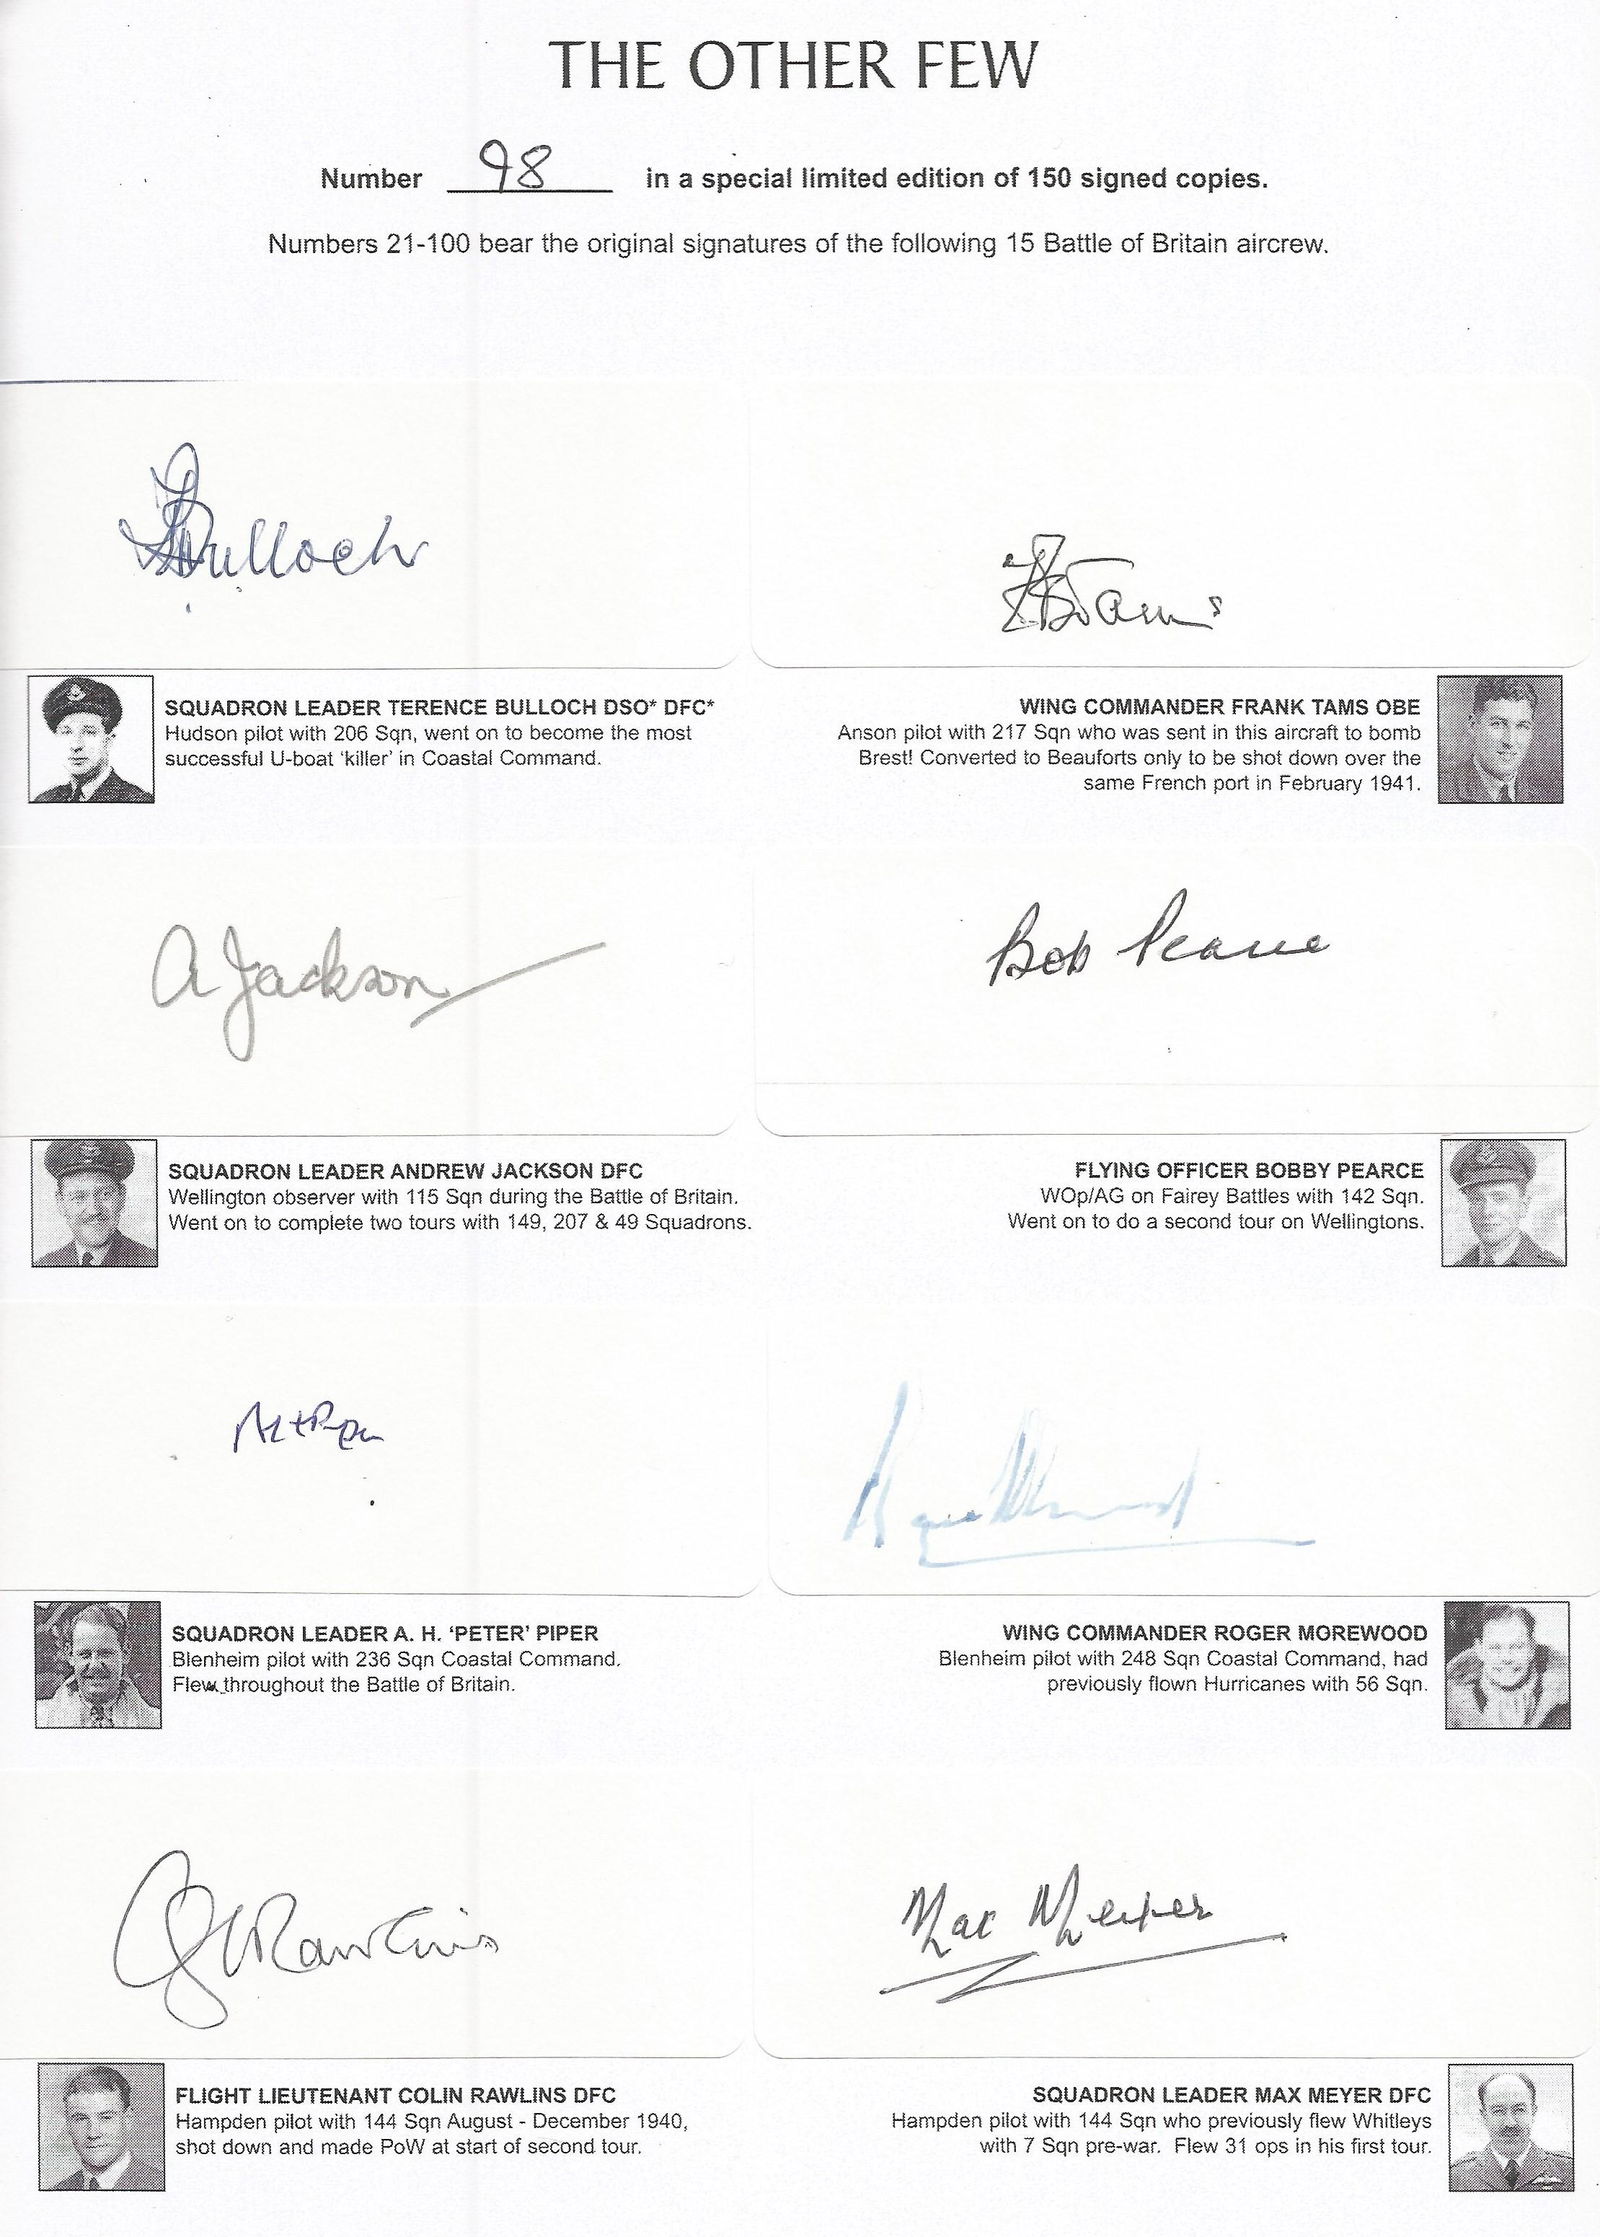 THE OTHER FEW
Number 98 in a special limited edition of 150 signed copies.
Numbers 21-100 bear the original signatures of the following 15 Battle of Britain aircrew.
Bulloch
Tams
SQUADRON LEADER TERENCE BULLOCH DSO* DFC*
Hudson pilot with 206 Sqn, went on to become the most
successful U-boat ‘killer’ in Coastal Command.
WING COMMANDER FRANK TAMS OBE
Anson pilot with 217 Sqn who was sent in this aircraft to bomb
Brest! Converted to Beauforts only to be shot down over the
same French port in February 1941.
A Jackson
Bob Pearce
SQUADRON LEADER ANDREW JACKSON DFC
Wellington observer with 115 Sqn during the Battle of Britain.
Went on to complete two tours with 149, 207 & 49 Squadrons.
FLYING OFFICER BOBBY PEARCE
WOp/AG on Fairey Battles with 142 Sqn.
Went on to do a second tour on Wellingtons.
AH Piper
Roger Morewood
SQUADRON LEADER A. H. ‘PETER’ PIPER
Blenheim pilot with 236 Sqn Coastal Command.
Flew throughout the Battle of Britain.
WING COMMANDER ROGER MOREWOOD
Blenheim pilot with 248 Sqn Coastal Command, had
previously flown Hurricanes with 56 Sqn.
Rawlins
Max Meyer
FLIGHT LIEUTENANT COLIN RAWLINS DFC
Hampden pilot with 144 Sqn August - December 1940,
shot down and made PoW at start of second tour.
SQUADRON LEADER MAX MEYER DFC
Hampden pilot with 144 Sqn who previously flew Whitleys
with 7 Sqn pre-war. Flew 31 ops in his first tour.